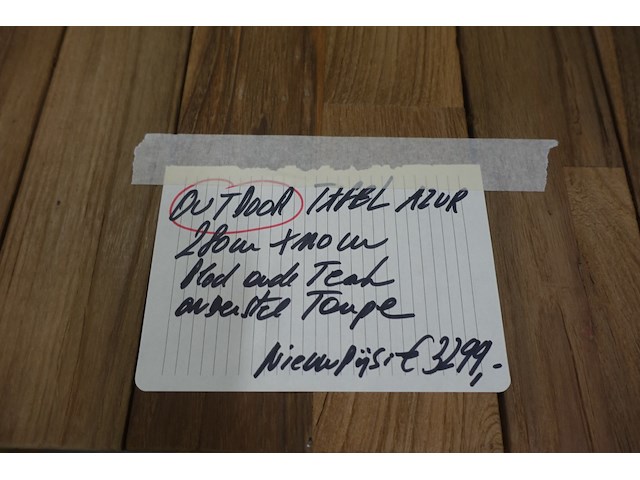 OUTDOOR TAFEL AZUR
280cm x 110 cm
Blad oude Teak
onderstel Taupe
Nieuwprijs: € 3299,-